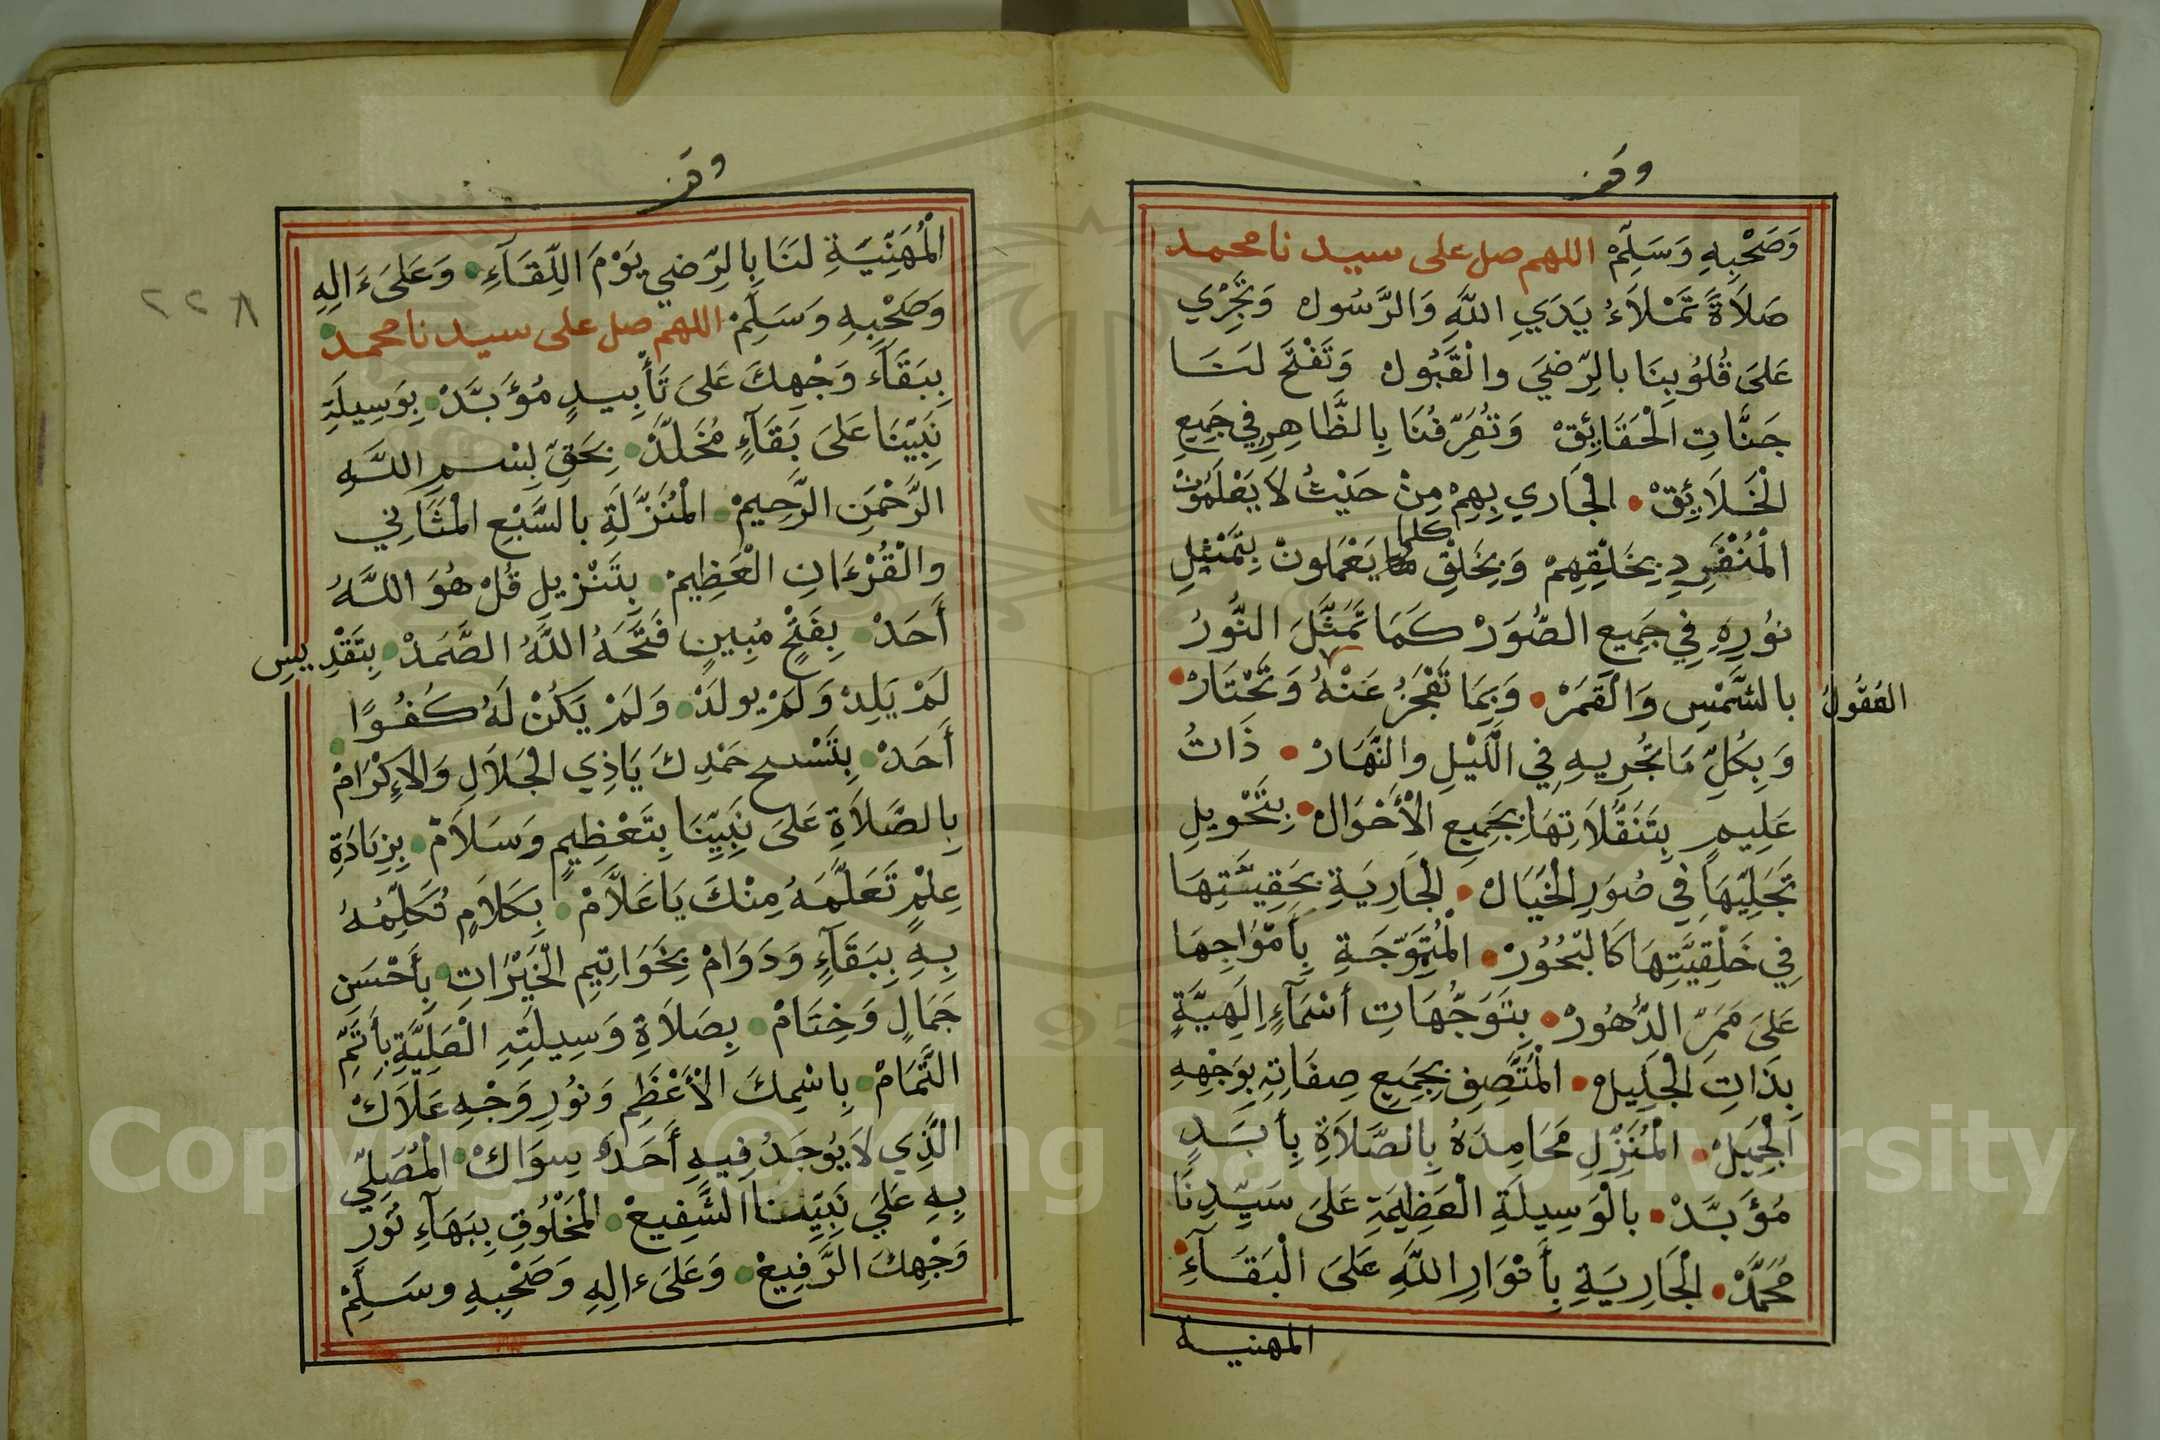 وقف
وَصَحْبِهِ وَسَلِّمْ اللهم صل على سيدنا محمد
صَلَاةً تَمْلَاءُ يَدَيِ اللَّهِ وَالرَّسُولْ وَتَجْرِي
عَلَىَ قُلُوبِنَا بالرِّضَىَ والْقَبُولْ وَتَفْتَح لَنَا
جَنَّاتِ الْحَقَايِقْ وَتُعَرِّفُنَا بِالظَّاهِرِ فِي جَمِيعِ
الْخَلَايِقْ الْجَارِي بِهِمْ مِنْ حَيْثُ لَا يَعْلَمُونْ
الْمُنْفَرِدِ بِخَلْقِهِمْ وَبِخَلْقِ كلما يَعْمَلُونْ بِتَمْثِيلِ
نُورِهِ فِي جَمِيعِ الصُّوَرْ كَمَا تَمَثَّلَ النُّورُ
بالشَّمْسِ وَالْقَمَرْ وَبِمَا تَعْجَزُ عَنْهُ وَتَحْتَارْ
العُقُولُ
وَبِكُلِّ مَا تُجْرِيهِ فِي الَّيْلِ والنَّهَارْ ذَاتُ
عَلِيمٍ بِتَنَقُّلَاتِهَا بِجَمِيعِ الْأَحْوَالْ بِتَحْوِيلِ
تَجَلِّيهَا فِي صُوَرِ الْخَيَالْ الْجَارِيَةِ بِحَقِيقَتِهَا
فِي خَلْقِيَّتِهَا كَالْبُحُورْ الْمُتَمَوِّجَةِ بِأَمْوَاجِهَا
عَلَىَ مَمَرِّ الدُّهُورْ بِتَوَجُّهَاتِ أَسْمَآءٍ اِلَهِيَّةٍ
بِذَاتِ الْجَلِيلْ الْمُتَّصِفِ بِجَمِيعِ صِفَاتِهِ بِوَجْهِهِ
الْجَمِيلْ الْمُنَزِّلِ مَحَامِدَهُ بِالصَّلَاةِ بِأَبَدٍ
مُؤَبَّدْ بالْوَسِيلَةِ الْعَظِيمَةِ عَلَىَ سَيِّدِنَا
مُحَمَّدْ الْجَارِيَةِ بِأَنْوَارِ اللَّهِ عَلَىَ الْبَقَآءِ
المهنية
وقف
الْمُهَنِّيَةِ لَنَا بِالرِّضَي يَوْمَ اللِّقَآءِ وَعَلَىَ ءَالِهِ
وَصَحْبِهِ وَسَلِّمْ اللهم صل على سيدنا محمد
بِبَقَآءِ وَجْهِكَ عَلَىَ تَأْبِيدٍ مُؤَبَّدْ بِوَسِيلَةِ
نَبِيِّنَا عَلَىَ بَقَآءٍ مُخَلَّدْ بِحَقِّ بِسْمِ اللَّهِ
الرَّحْمَنِ الرَّحِيمْ الْمُنَزَّلَةِ بالسَّبْعِ الْمَثَانِي
والْقُرْءَانِ الْعَظِيمْ بِتَنْزِيلِ قُلْ هُوَ اللَّهُ
أَحَدْ بِفَتْحٍ مُبِينٍ فَتَحَهُ اللَّهُ الصَّمَدْ بِتَقْدِيسِ
لَمْ يَلِدْ وَلَمْ يولَدْ وَلَمْ يَكُنْ لَهُ كُفُوًا
أَحَدْ بِتَسْبِيحِ حَمْدِكَ يَاذِي الْجَلَالِ وَالْإِكْرَامْ
بِالصَّلَاةِ عَلَىَ نَبِيِّنَا بِتَعْظِيمٍ وَسَلَامْ بِزِيَادَةِ
عِلْمٍ تَعَلَّمَهُ مِنْكَ يَاعَلَّامْ بِكَلَامٍ تُكَلِّمُهُ
بِهِ بِبَقَآءٍ وَدَوَامْ بِخَوَاتِيمِ الْخَيْرَاتِ بِأَحْسَنِ
جَمَالٍ وَخِتَامْ بِصَلَاةِ وَسِيلَتِهِ الْعَلِيَّةِ بِأَتَمِّ
التَّمَامْ بِاسْمِكَ الْأَعْظَمِ وَنُورِ وَجْهِ عَلَاكْ
الَّذِي لَا يُوجَدُ فِيهِ أَحَدٌ سِوَاكْ الْمُصَلِّي
بِهِ عَلَي نَبِيِّنَا الشَّفِيعْ الْمَخْلُوقِ بِبَهَآءِ نُورِ
وَجْهِكَ الرَّفِيعْ وَعَلَىَ ءالِهِ وَصَحْبِهِ وسَلِّمْ
٢٢٨
Copyright © King Saud University